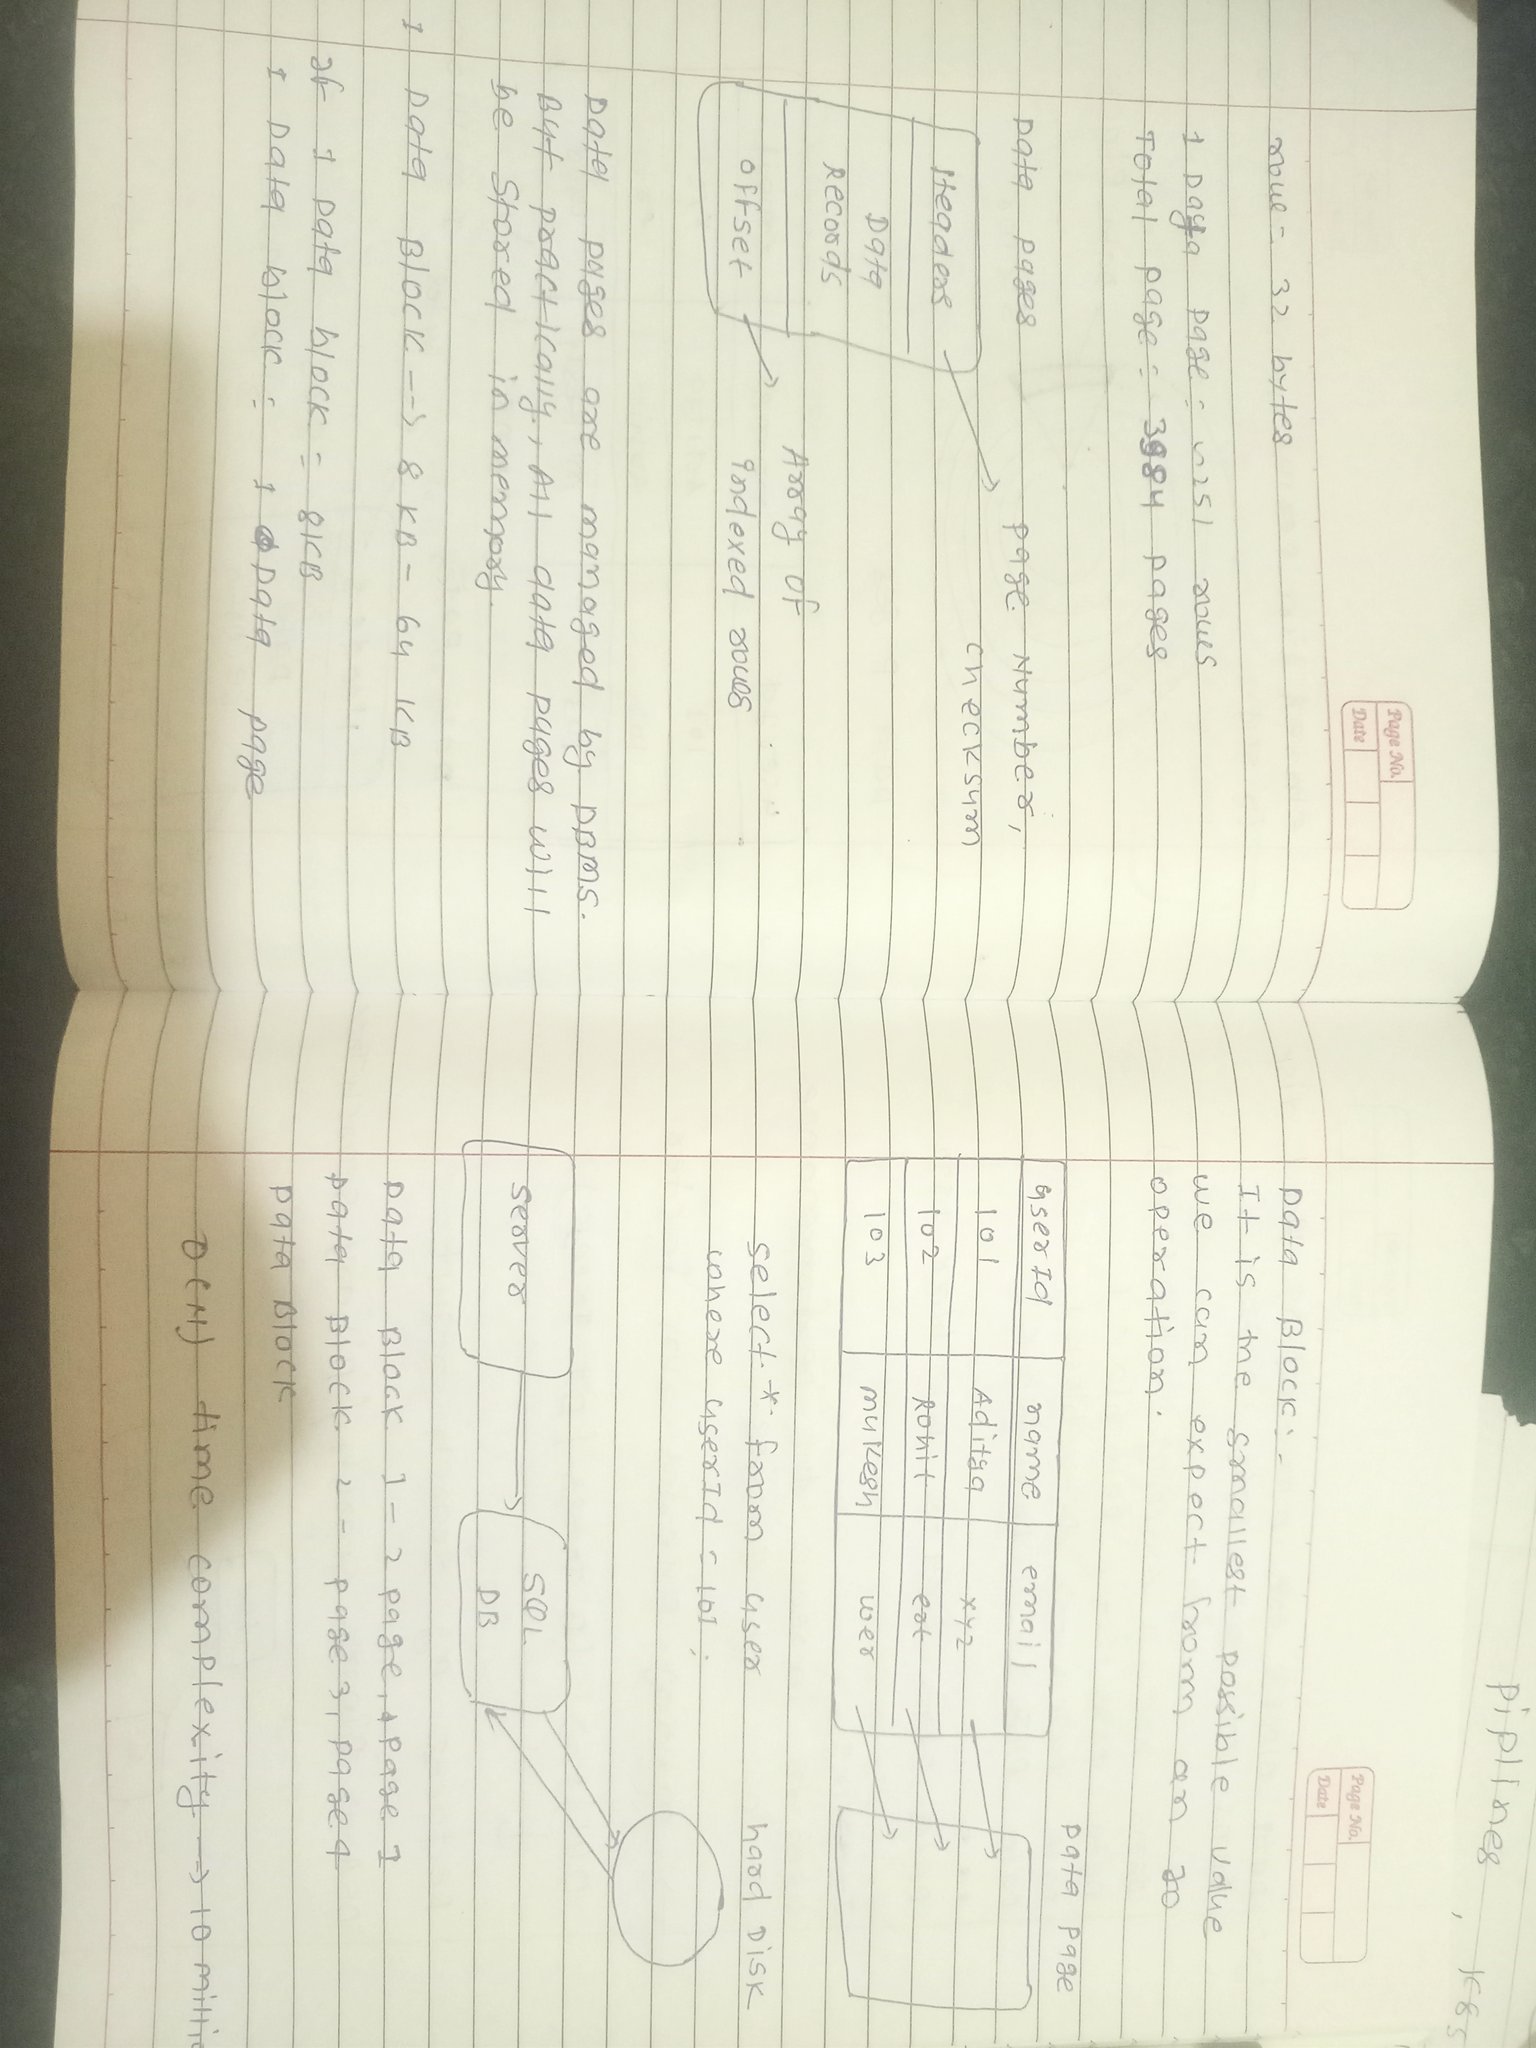 Page No.
Date
row = 32 bytes
1 Data page = 251 rows
Total page = 3984 pages
Data pages
Headers
Page Number,
checksum
Data
Records
offset
Array of
indexed rows
Data pages are managed by DBMS.
But practically, All data pages will
be stored in memory.
1 Data Block --> 8 KB - 64 KB
If 1 data block = 8KB
1 Data block = 1 Data page
Piplines, K8s
Page No.
Date
Data Block :-
It is the smallest possible value
we can expect from an IO
operation.
Data page
userId name email
101 Aditya xyz
102 Rohit ert
103 mukesh wer
select * from user
where userId = 101;
hard Disk
Server
SQL
DB
Data Block 1 - 2 page, page 1
Data Block 2 - page 3, page 4
Data Block
O(N) time complexity --> 10 milli